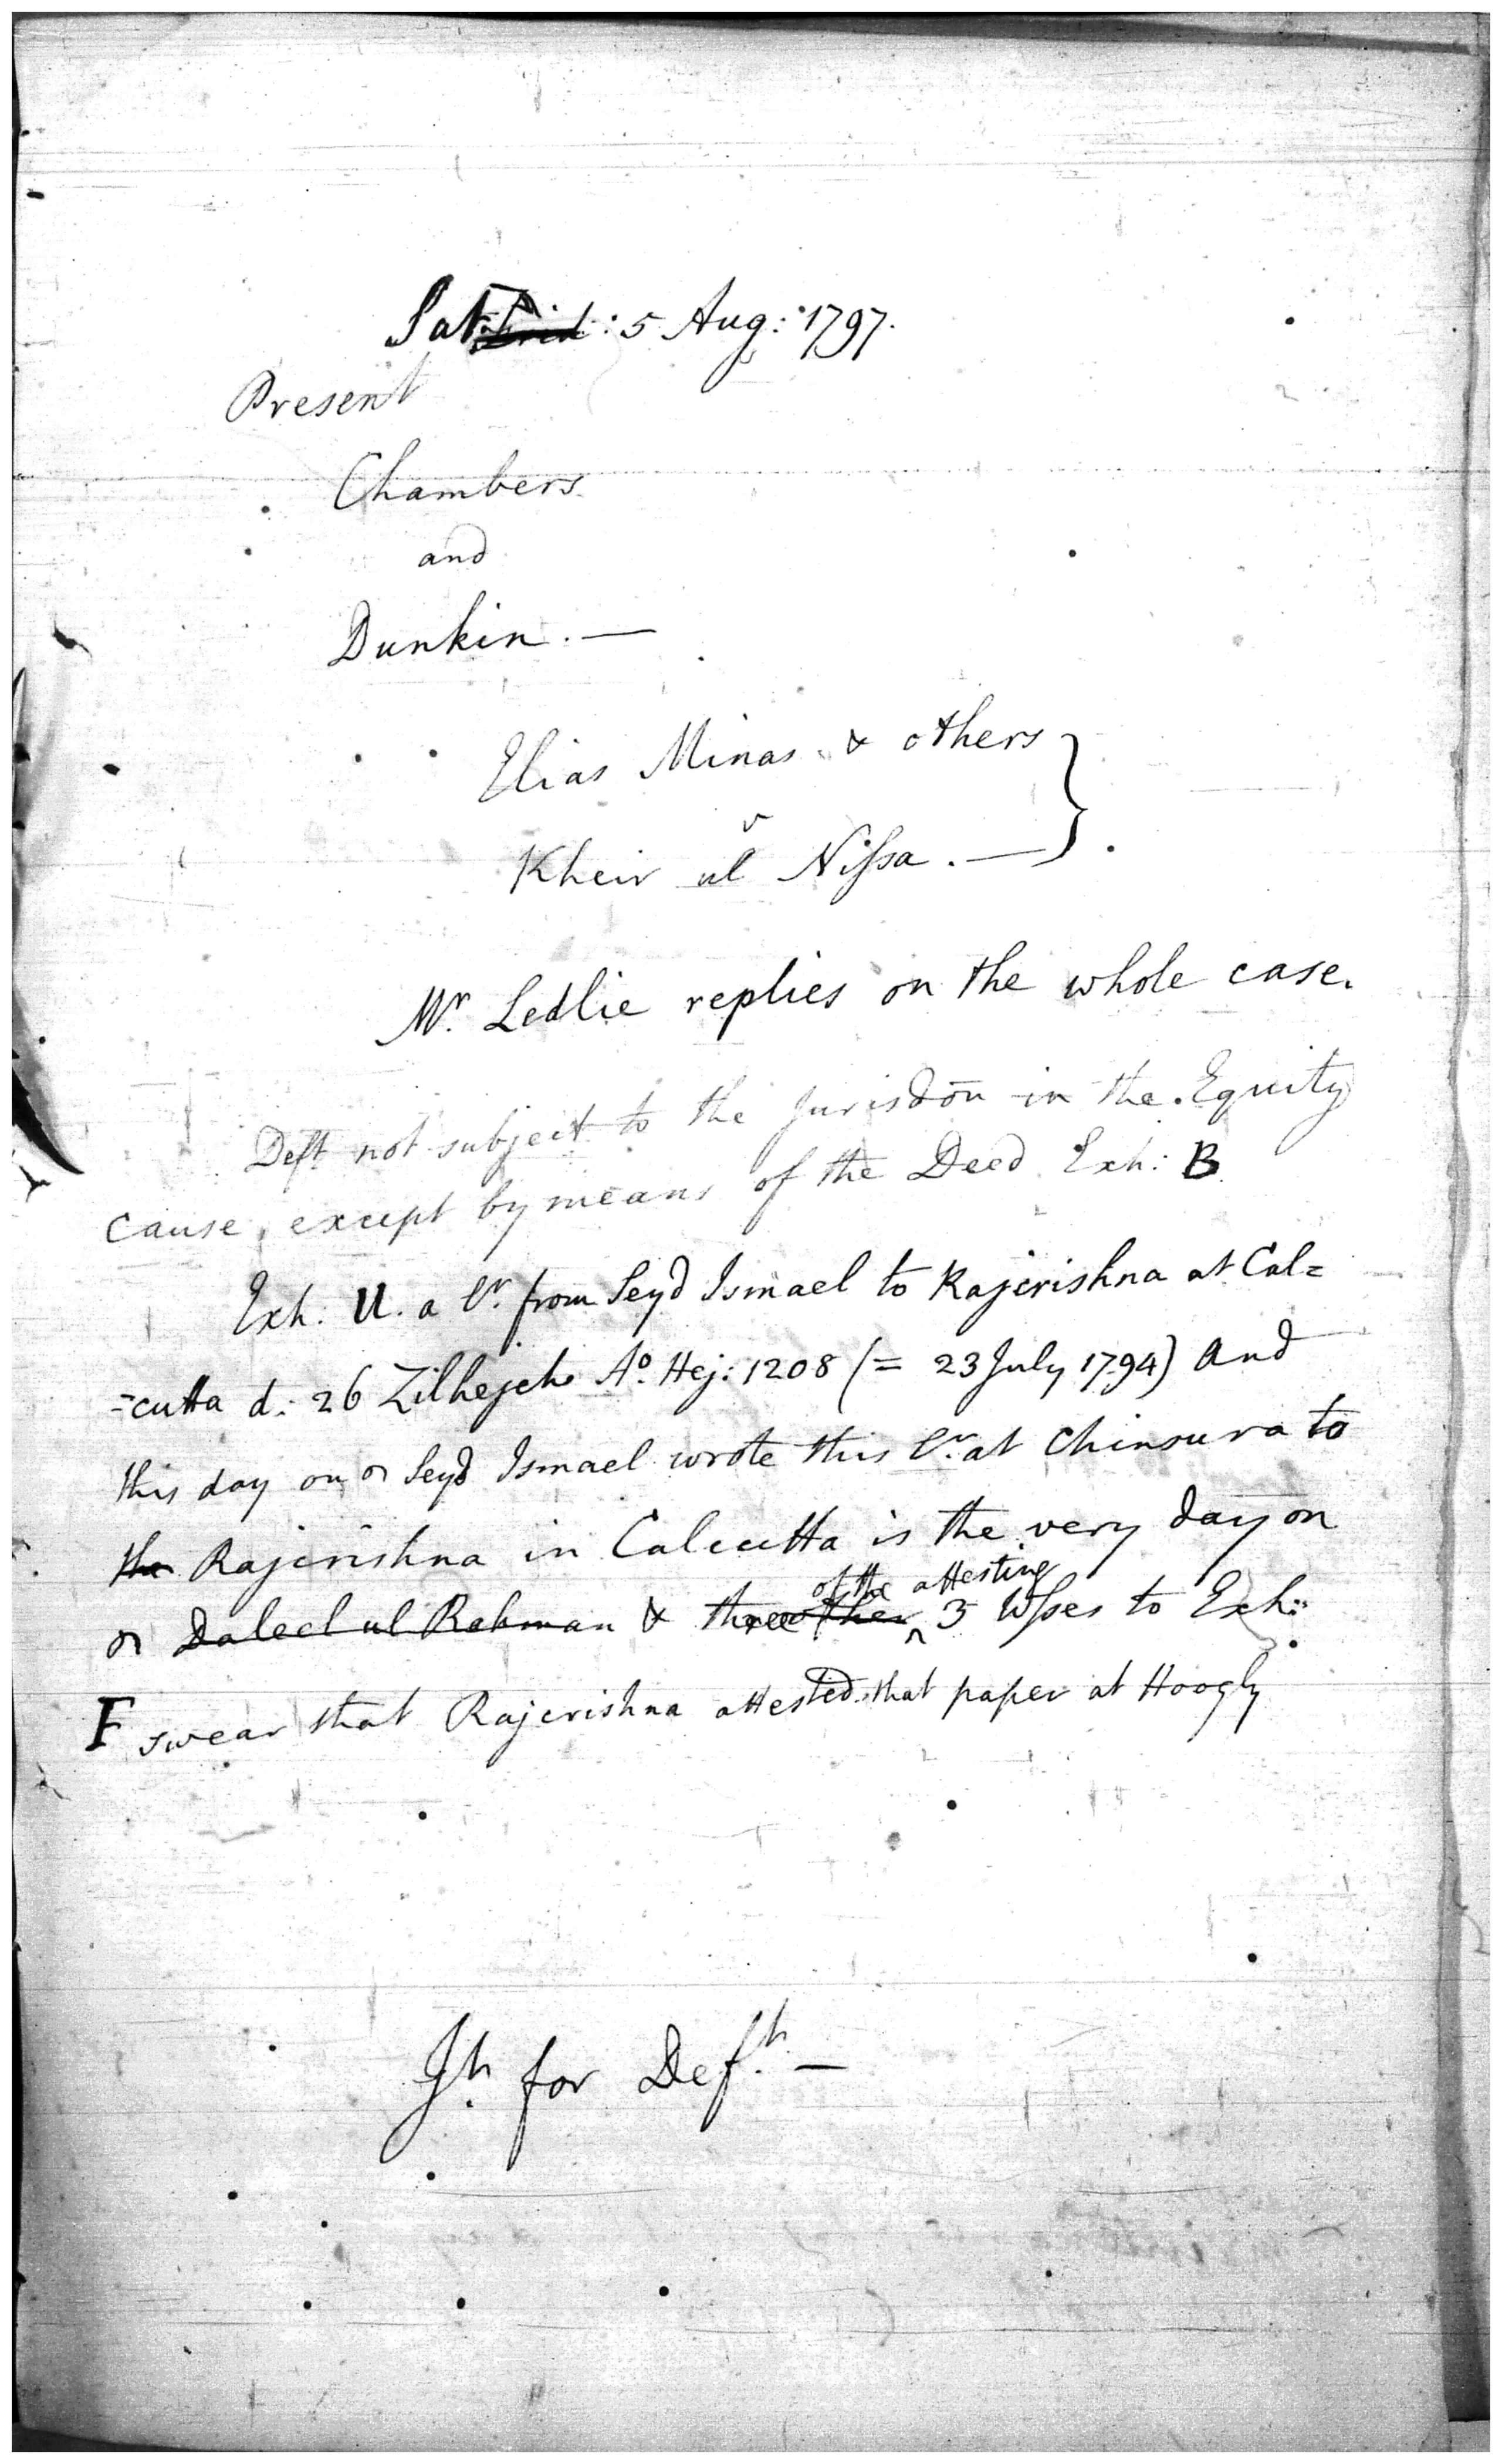 Sat: Frid: 5 Aug: 1797.
Present
Chambers
and
Dunkin. —
Elias Minas & others
v
Kheir ul Nissa. —
Mr. Ledlie replies on the whole case.
Deft not subject to the Jurisdon in the Equity
Cause, except by means of the Deed Exh: B
Exh: U. a lr. from Seyd Ismael to Rajcrishna at Cal=
=cutta d: 26 Zilhejeh Ao. Hej: 1208 (= 23 July 1794) and
this day on Seyd Ismael wrote this lr. at Chinsura to
the Rajcrishna in Calcutta is the very day on
of the attesting
Daleel ul Rahman & three other ^ 3 Wsses to Exh:
F swear that Rajcrishna attested that paper at Hoogly
Jt. for Deft. —